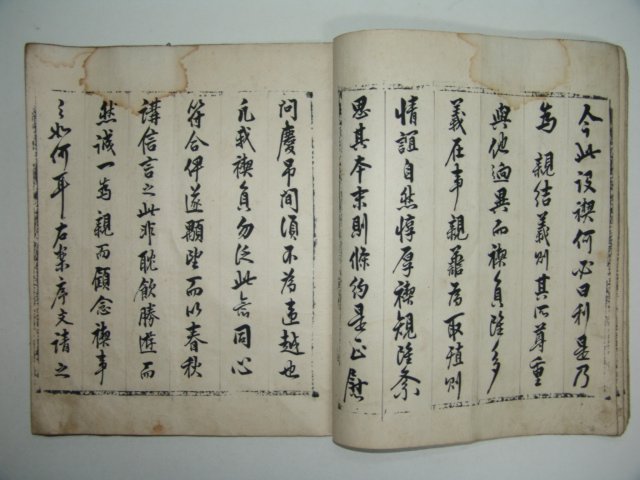 今此設禊何必曰利是乃
為親結義則其所尊重
與他逈異而禊員雖多
義在事親為取殖則
情誼自然惇厚禊規雖条
思其本末則條約是正慰
問慶吊間須不為違越也
凡我禊員勿泛此言同心
符合俾遂願望而以春秋
講信言之此非耽飲勝遊而
然誠一為親而顧念禊事
之如何耳右案序文請之